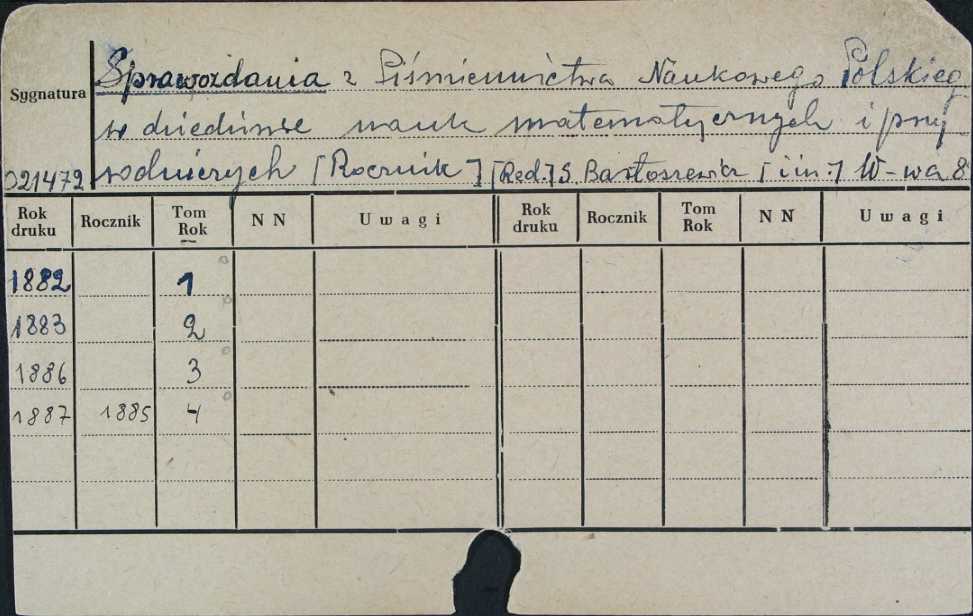 Sygnatura
021472
Sprawozdania z Piśmiennictwa Naukowego Polskieg
w dziedzinie nauk matematycznych i przy
rodniczych [Rocznik] [Red.] S. Bartoszewicz [i in.] W-wa 8°
Rok druku Rocznik Tom Rok NN Uwagi Rok druku Rocznik Tom Rok NN Uwagi
1882 1
1883 2
1886 3
1887 1885 4